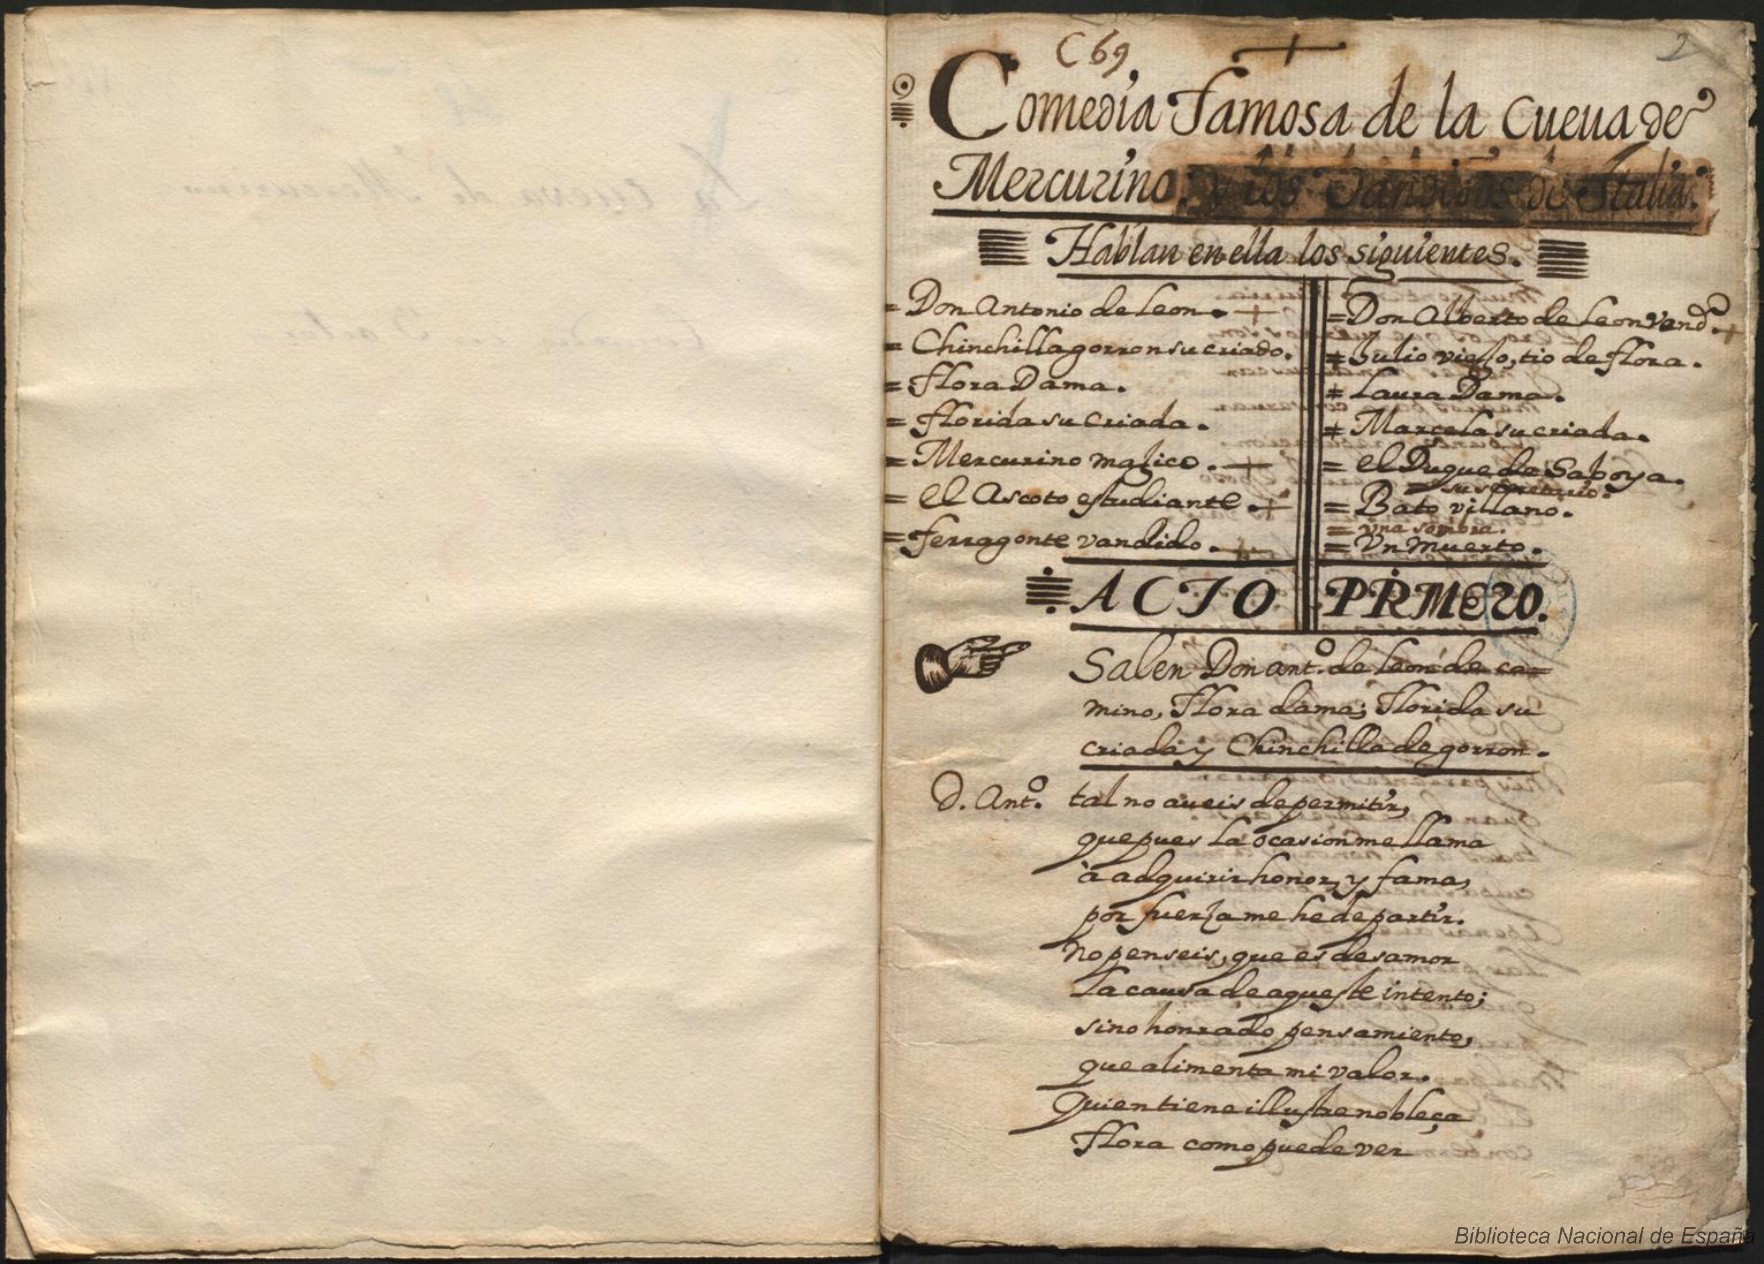 C 69
2
Comedia Famosa de la Cueua de
Mercurino. y los Vandidos de Italia.
Hablan en ella los siguientes.
= Don Antonio de Leon. +
= Chinchilla gorron su criado.
= Flora Dama.
= Florida su Criada.
= Mercurino magico. +
= el Ascoto estudiante. +
= Ferragonte vandido. +
= Don Alberto de Leon Vand.º +
= Julio viejo, tio de flora.
= Laura Dama.
= Marcela su criada.
= el Duque de Saboya.
= su secretario.
= Bato villano.
= vna sombra.
= Vn muerto.
ACTO PRIMERO.
Salen Don ant.º de Leon de ca=
mino, Flora dama; Florida su
criada y Chinchilla de gorron.
D. Ant.º tal no aueis de permitir,
que pues la ocasion me llama
à adquirir honor, y fama,
por fuerza me he de partir.
no penseis, que es desamor
la causa de aqueste intento;
sino honrado pensamiento,
que alimenta mi valor.
Quien tiene illustre nobleça
Flora como puede ver
Biblioteca Nacional de España